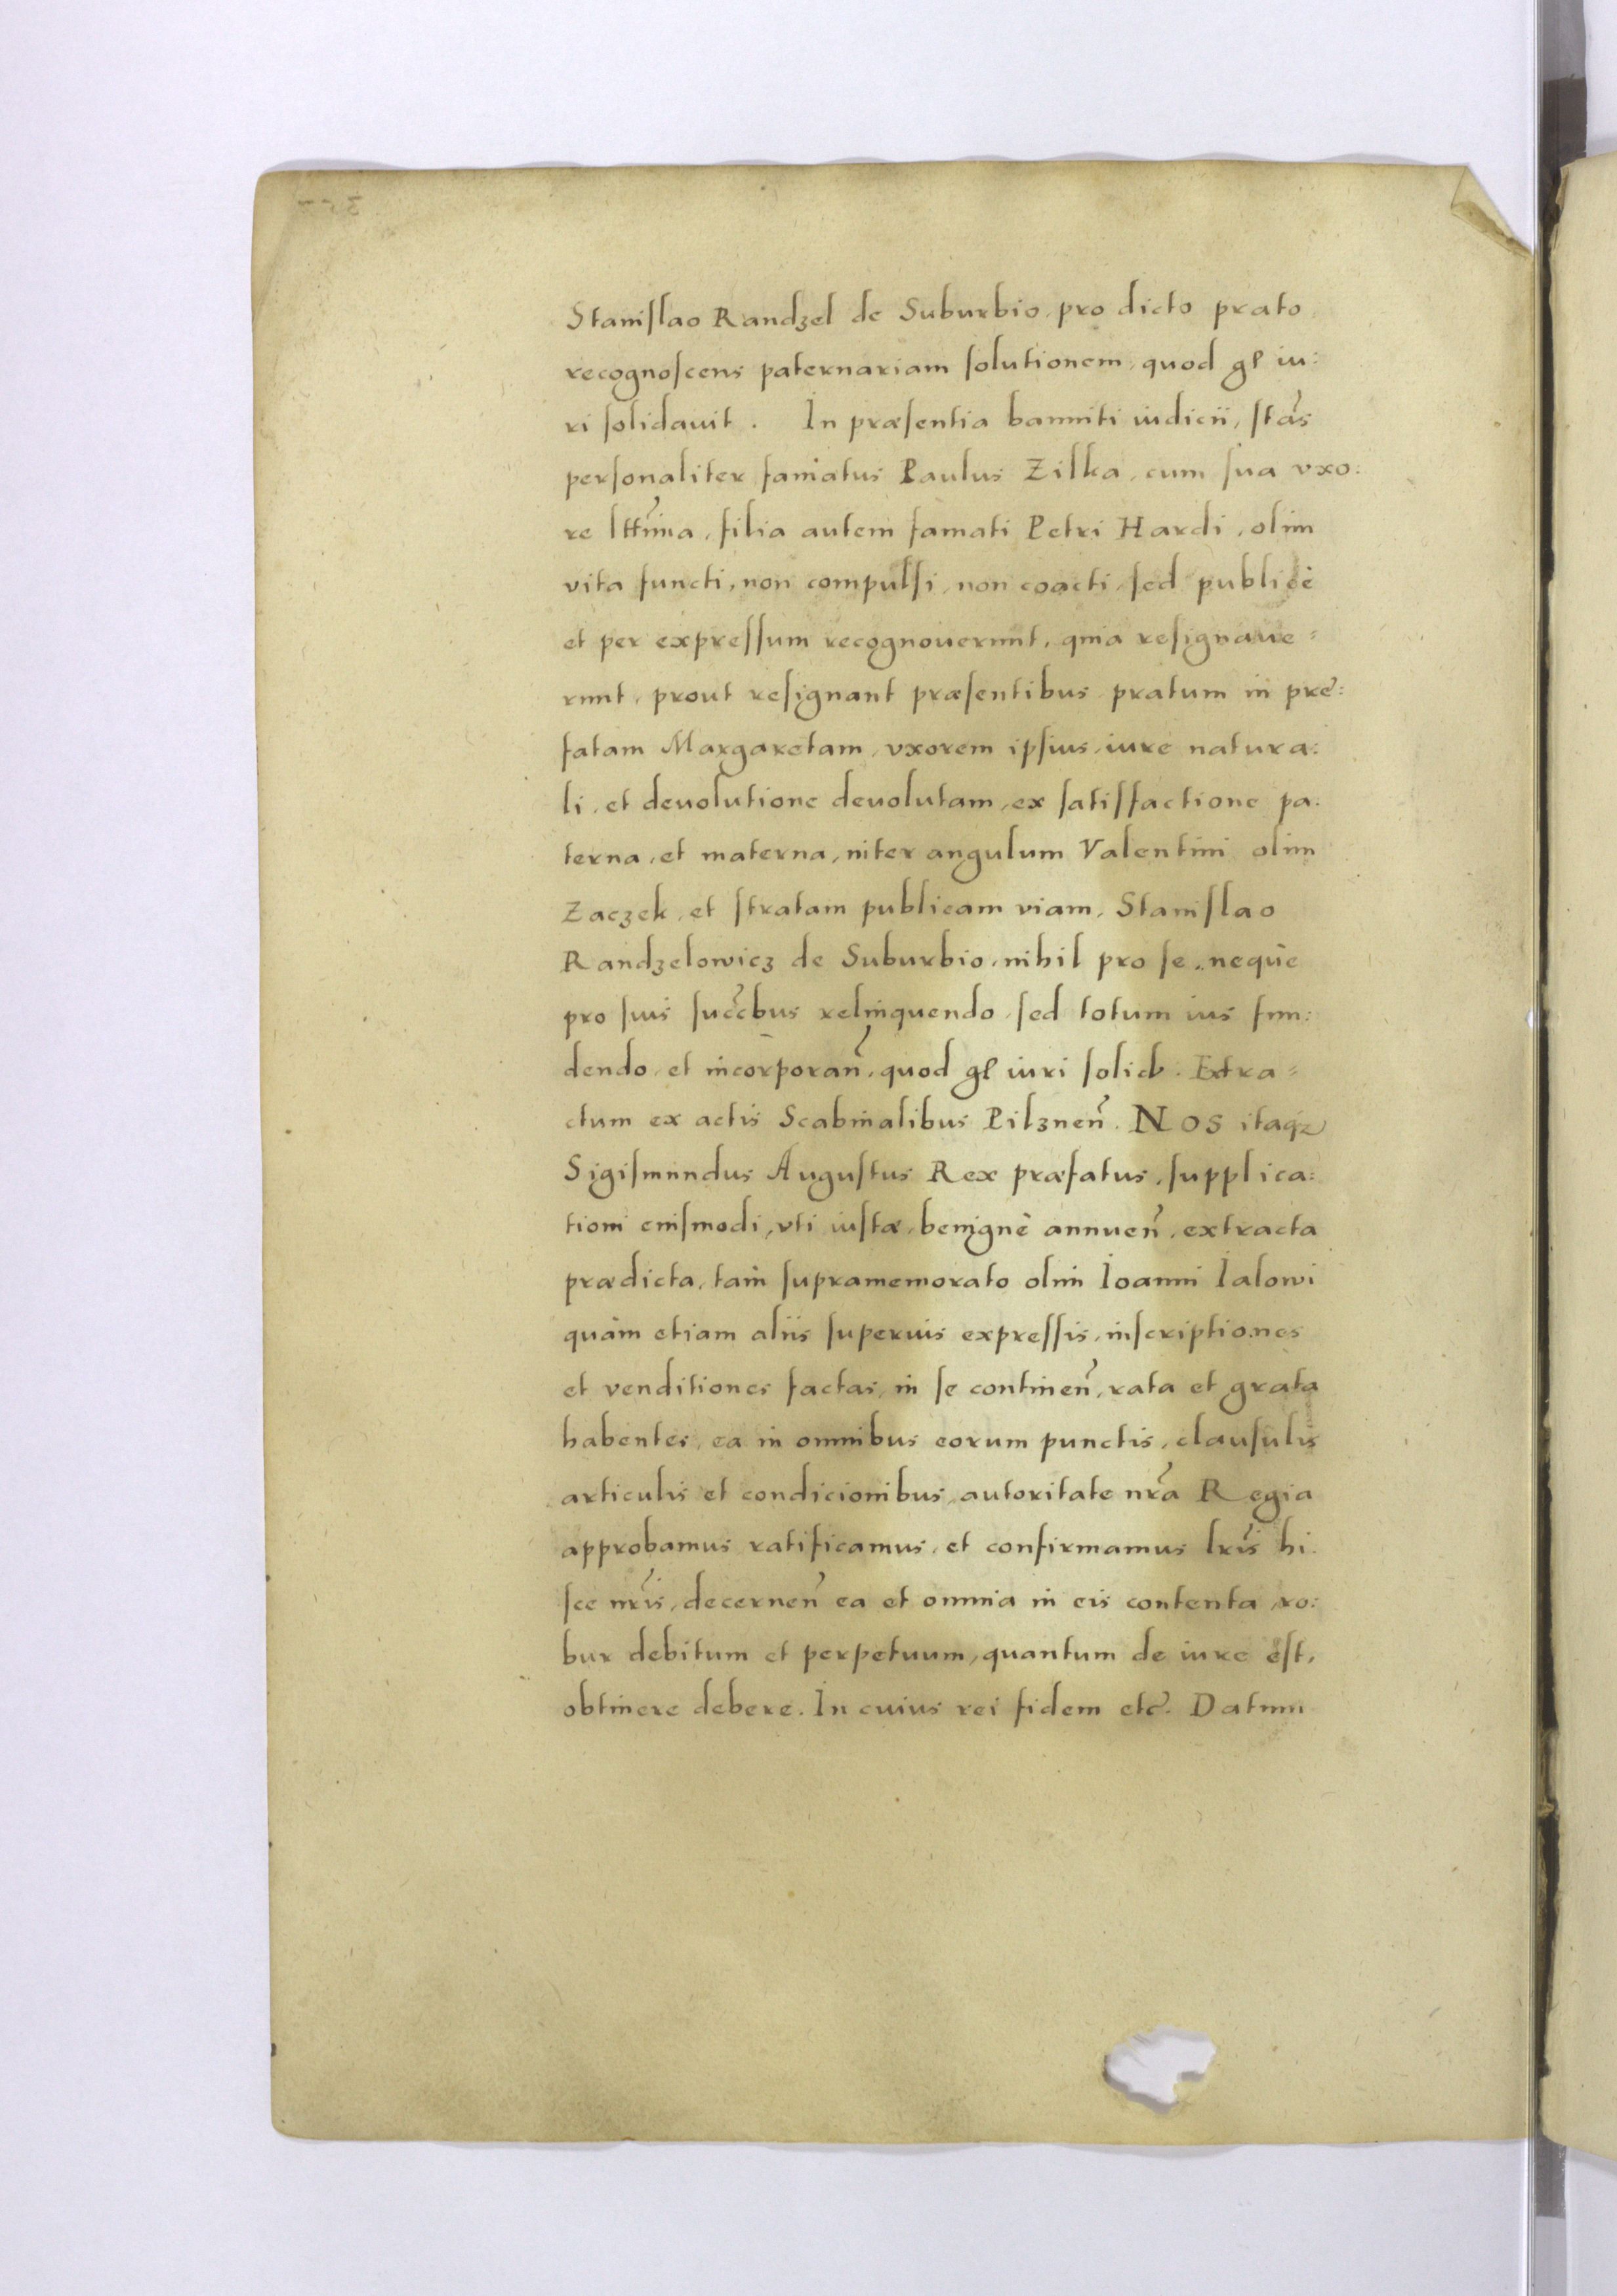 Staniſlao Randzel de Suburbio, pro dicto prato
recognoſcens paternariam ſolutionem, quod gl iu:
ri ſolidauit. In præſentia banniti iudicii, ſtãs
perſonaliter famatus Paulus Zilka, cum ſua vxo:
re lttima, filia autem famati Petri Hardi, olim
vita functi, non compulſi, non coacti, ſed publicè
et per expreſſum recognouerunt, quia reſignaue=
runt, prout reſignant præſentibus pratum in prę:
fatam Margaretam, vxorem ipſius, iure natura:
li, et deuolutione deuolutam, ex ſatiſfactione pa:
terna, et materna, inter angulum Valentini olim
Zaczek, et ſtratam publicam viam, Staniſlao
Randzelowicz de Suburbio, nihil pro ſe, nequè
pro ſuis ſuccbus relinquendo, ſed totum ius fun:
dendo, et incorporan̄, quod gl iuri ſolid. Extra=
ctum ex actis Scabinalibus Pilznen̄. NOS itaqꝫ
Sigiſmundus Auguſtus Rex præfatus, ſupplica:
tioni eiuſmodi, vti iuſtæ, benignè annuen̄, extracta
prædicta, tam̀ ſupramemorato olim Ioanni Ialowi
quàm etiam aliis ſuperius expreſſis, inſcriptiones
et venditiones factas, in ſe continen̄, rata et grata
habentes, ea in omnibus eorum punctis, clauſulis
articulis et condicionibus, autoritate nr̃a Regia
approbamus ratificamus, et confirmamus lr̃is hi:
ſce nr̃is, decernen̄ ea et omnia in eis contenta, ro:
bur debitum et perpetuum, quantum de iure eſt,
obtinere debere. In cuius rei fidem etc̃. Datum